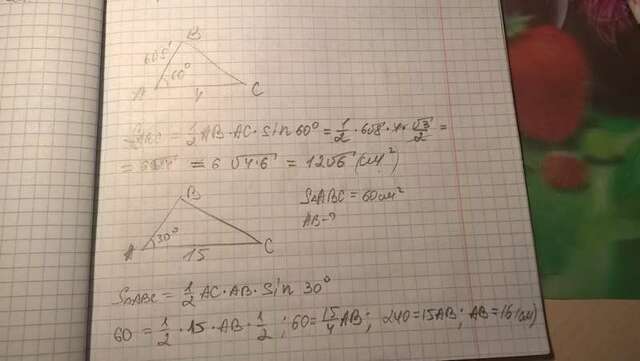 B
6√8
60°
A
4
C
S△ABC = 1/2 AB · AC · sin 60° = 1/2 · 6√8 · 4 · √3/2 =
= 6√4·6 = 12√6 (см²)
B
S△ABC = 60 см²
AB - ?
A
30°
15
C
S△ABC = 1/2 AC · AB · sin 30°
60 = 1/2 · 15 · AB · 1/2 ; 60 = 15/4 AB ; 240 = 15AB ; AB = 16 (см)